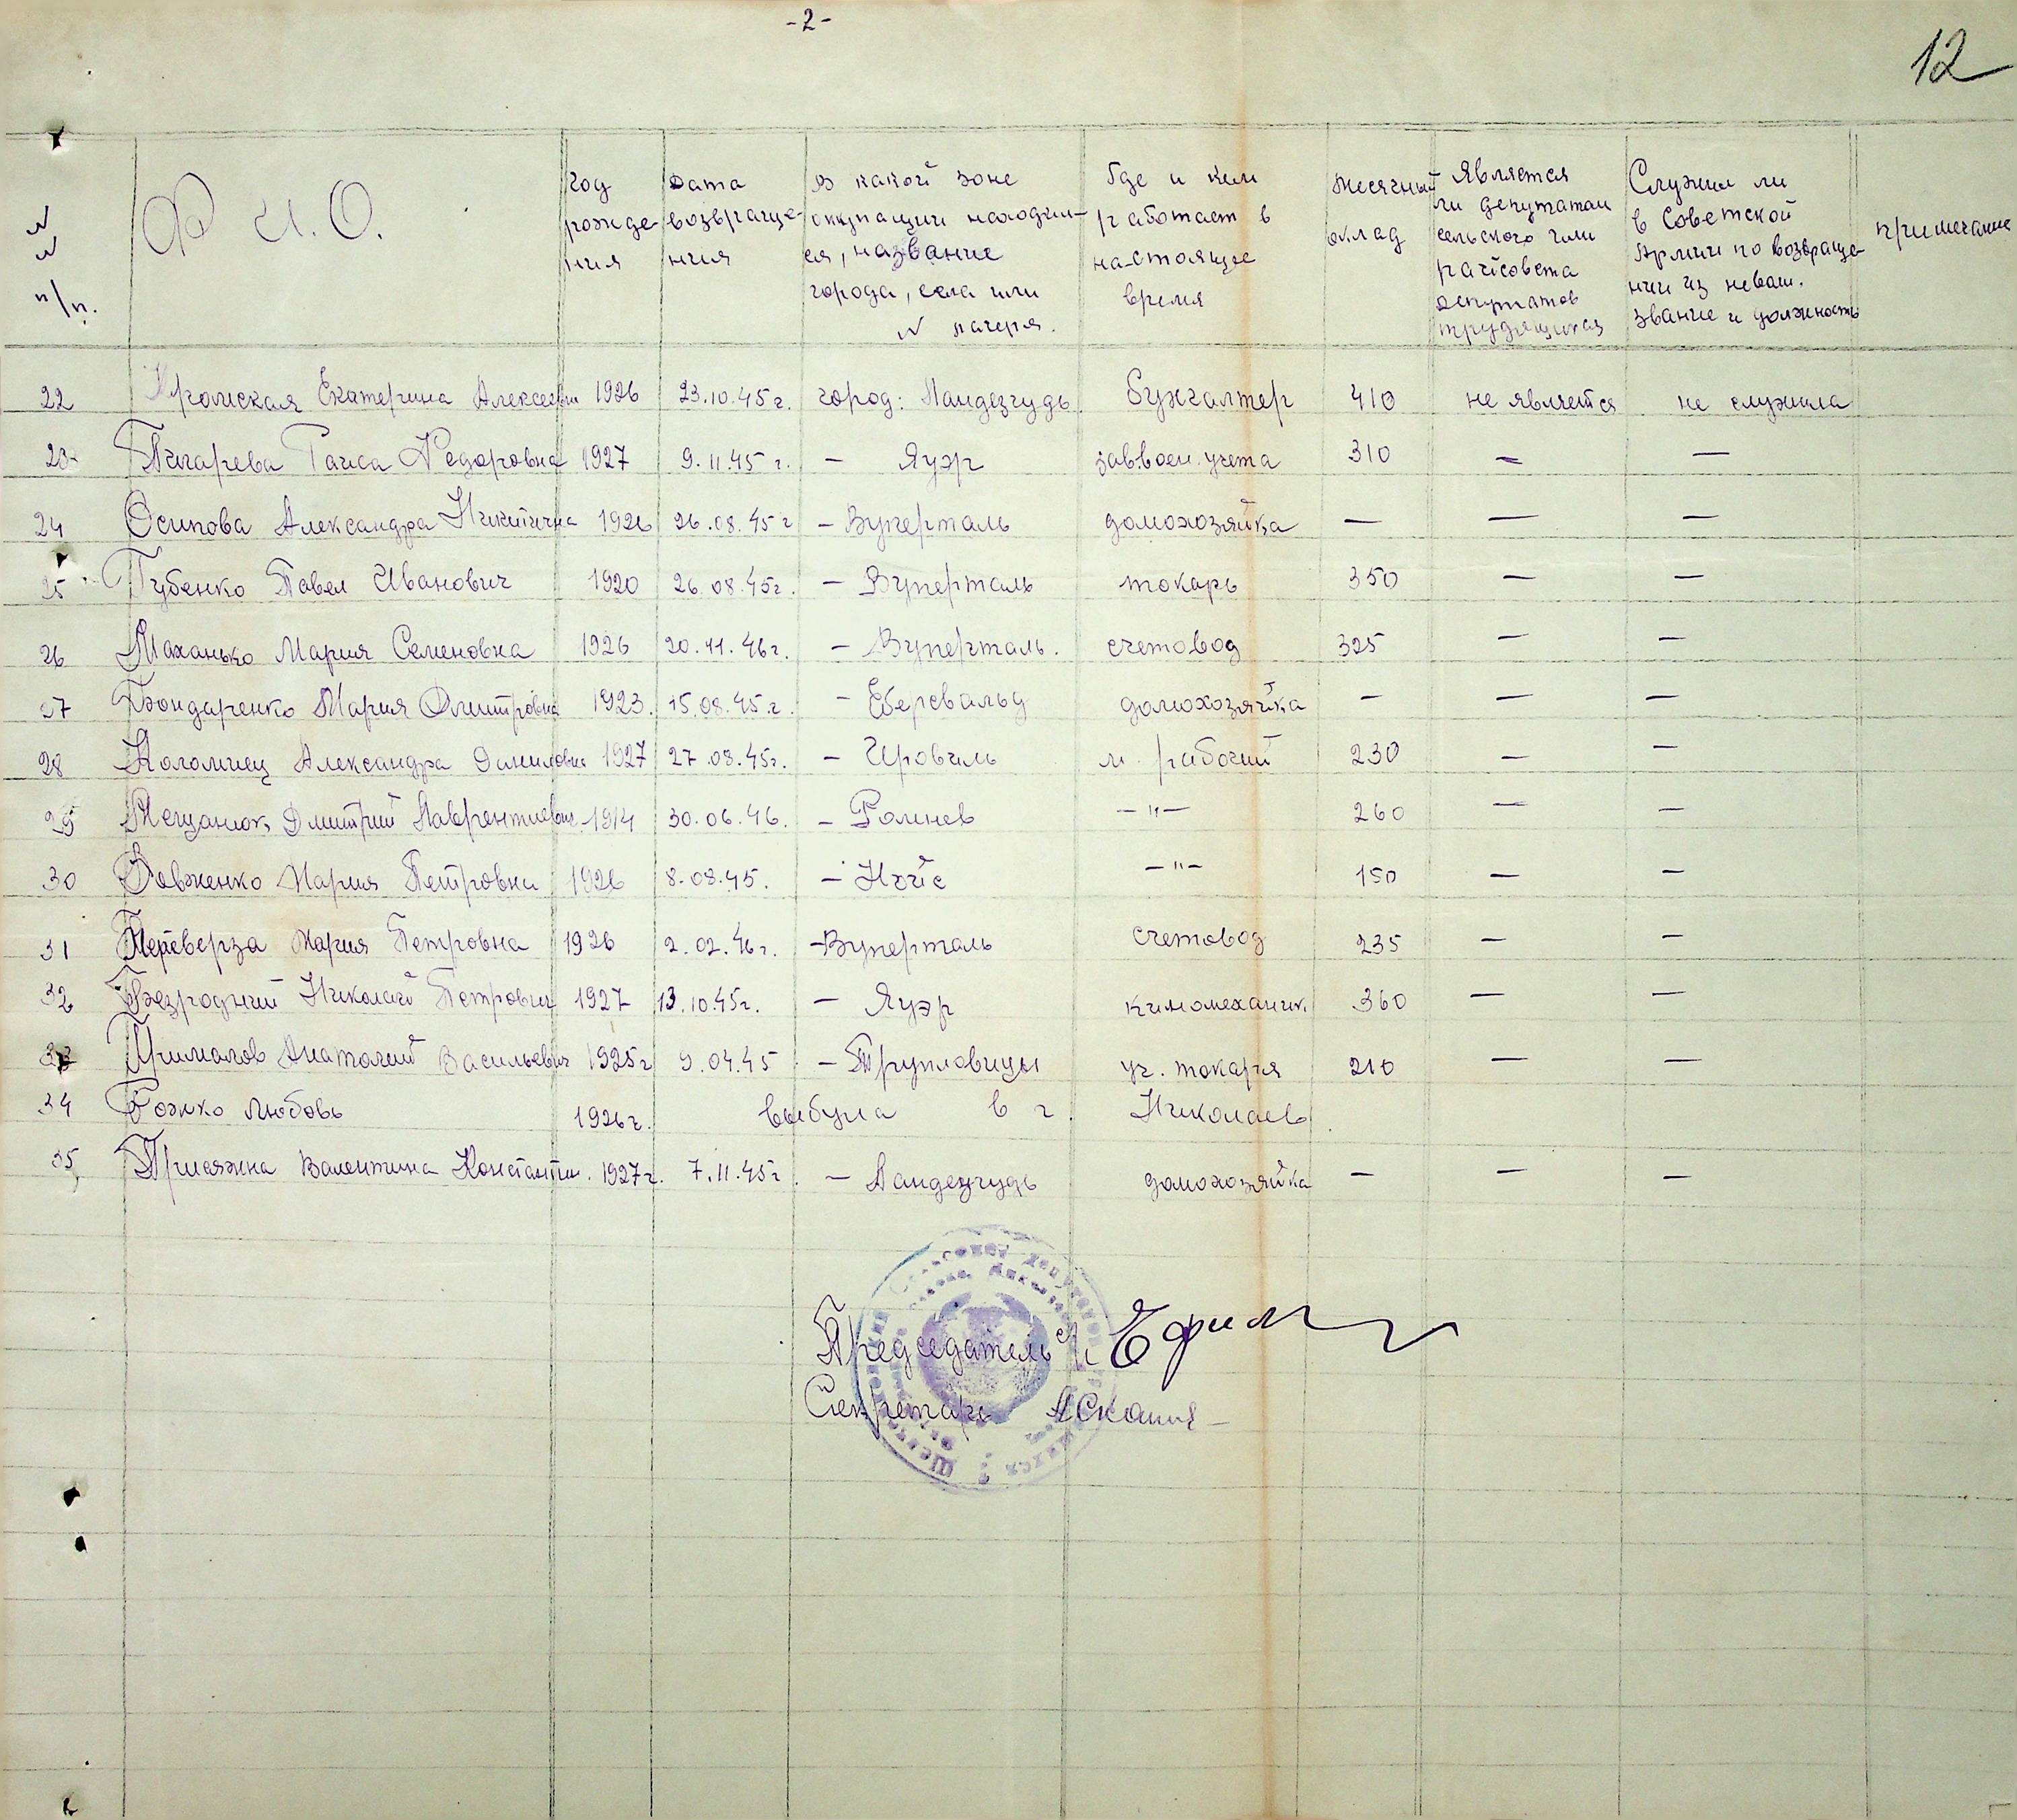 -2-
12
№№ п/п.
Ф И.О.
год рождения
Дата возвращения
В какой зоне оккупации находился, название города, села или № лагеря.
Где и кем работает в настоящее время
Месячный оклад
Является ли депутатом сельского или райсовета депутатов трудящихся
Служил ли в Советской Армии по возвращении из неволи. звание и должность
примечание
22 Екатерина Алексеевна 1926 23.10.45г. город: Ландезгудь Бухгалтер 410 не является не служила
23 Пигарева Раиса Федоровна 1927 9.11.45 г. — Яуэр зав.воен. учета 310 — —
24 Осипова Александра Никитична 1926 26.08.45г — Вуперталь домохозяйка — — —
25 Губенко Павел Иванович 1920 26.08.45г. — Вуперталь токарь 350 — —
26 Маханько Мария Семеновна 1926 20.11.46г. — Вуперталь. счетовод 325 — —
27 Бондаренко Мария Дмитровна 1923. 15.08.45.г. — Еберсвальд домохозяйка — — —
28 Коломиец Александра Даниловна 1927 27.08.45г. — Цровиль м. рабочий 230 — —
29 Мещанюк Дмитрий Лаврентиевич 1914 30.06.46. — Ромнев —"— 260 — —
30 Довженко Мария Петровна 1926 8.08.45. — Нойс —"— 150 — —
31 Переверза Мария Петровна 1926 2.02.46г. — Вуперталь счетовод 235 — —
32 Безродний Николай Петрович 1927 13.10.45г. — Яуэр киномеханик 360 — —
33 Прималов Анатолий Васильевич 1925г 9.04.45 — Трупловицы уч. токаря 210 — —
34 Рожко Любовь 1926г. выбула в г. Николаев.
35 Присяжна Валентина Константин. 1927г. 7.11.45г. — Ландезгудь домохозяйка — — —
Председатель с/с Ефим
Секретарь